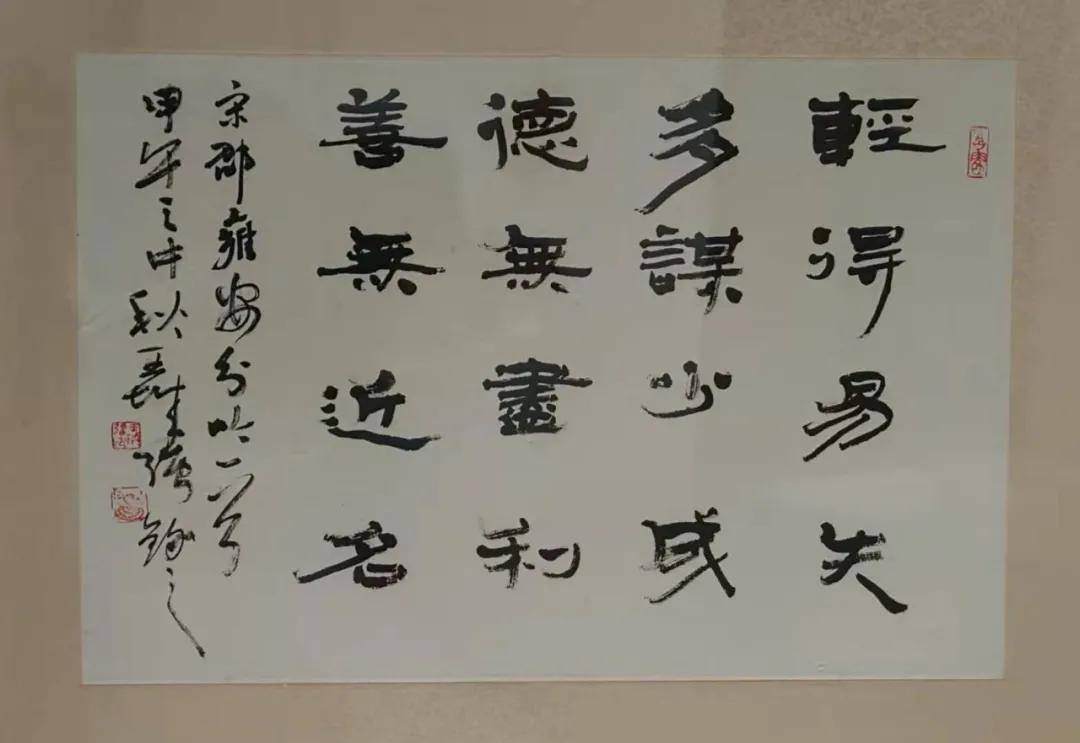 輕得易失
多謀少成
德無盡利
善無近名
宋邵雍安分吟一首
甲午之中秋